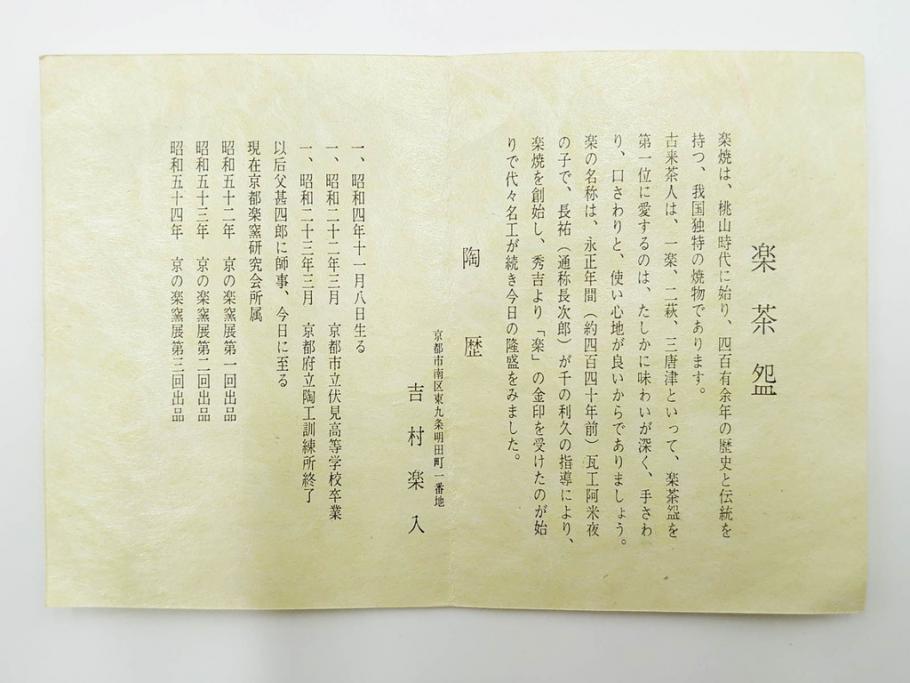 楽茶盌
楽焼は、桃山時代に始り、四百有余年の歴史と伝統を
持つ、我国独特の焼物であります。
古来茶人は、一楽、二萩、三唐津といって、楽茶盌を
第一位に愛するのは、たしかに味わいが深く、手さわ
り、口さわりと、使い心地が良いからでありましょう。
楽の名称は、永正年間（約四百四十年前）瓦工阿米夜
の子で、長祐（通称長次郎）が千の利久の指導により、
楽焼を創始し、秀吉より「楽」の金印を受けたのが始
りで代々名工が続き今日の隆盛をみました。
陶歴
京都市南区東九条明田町一番地
吉村楽入
一、昭和四年十一月八日生る
一、昭和二十二年三月　京都市立伏見高等学校卒業
一、昭和二十三年三月　京都府立陶工訓練所終了
以后父甚四郎に師事、今日に至る
現在京都楽窯研究会所属
昭和五十二年　京の楽窯展第一回出品
昭和五十三年　京の楽窯展第二回出品
昭和五十四年　京の楽窯展第三回出品